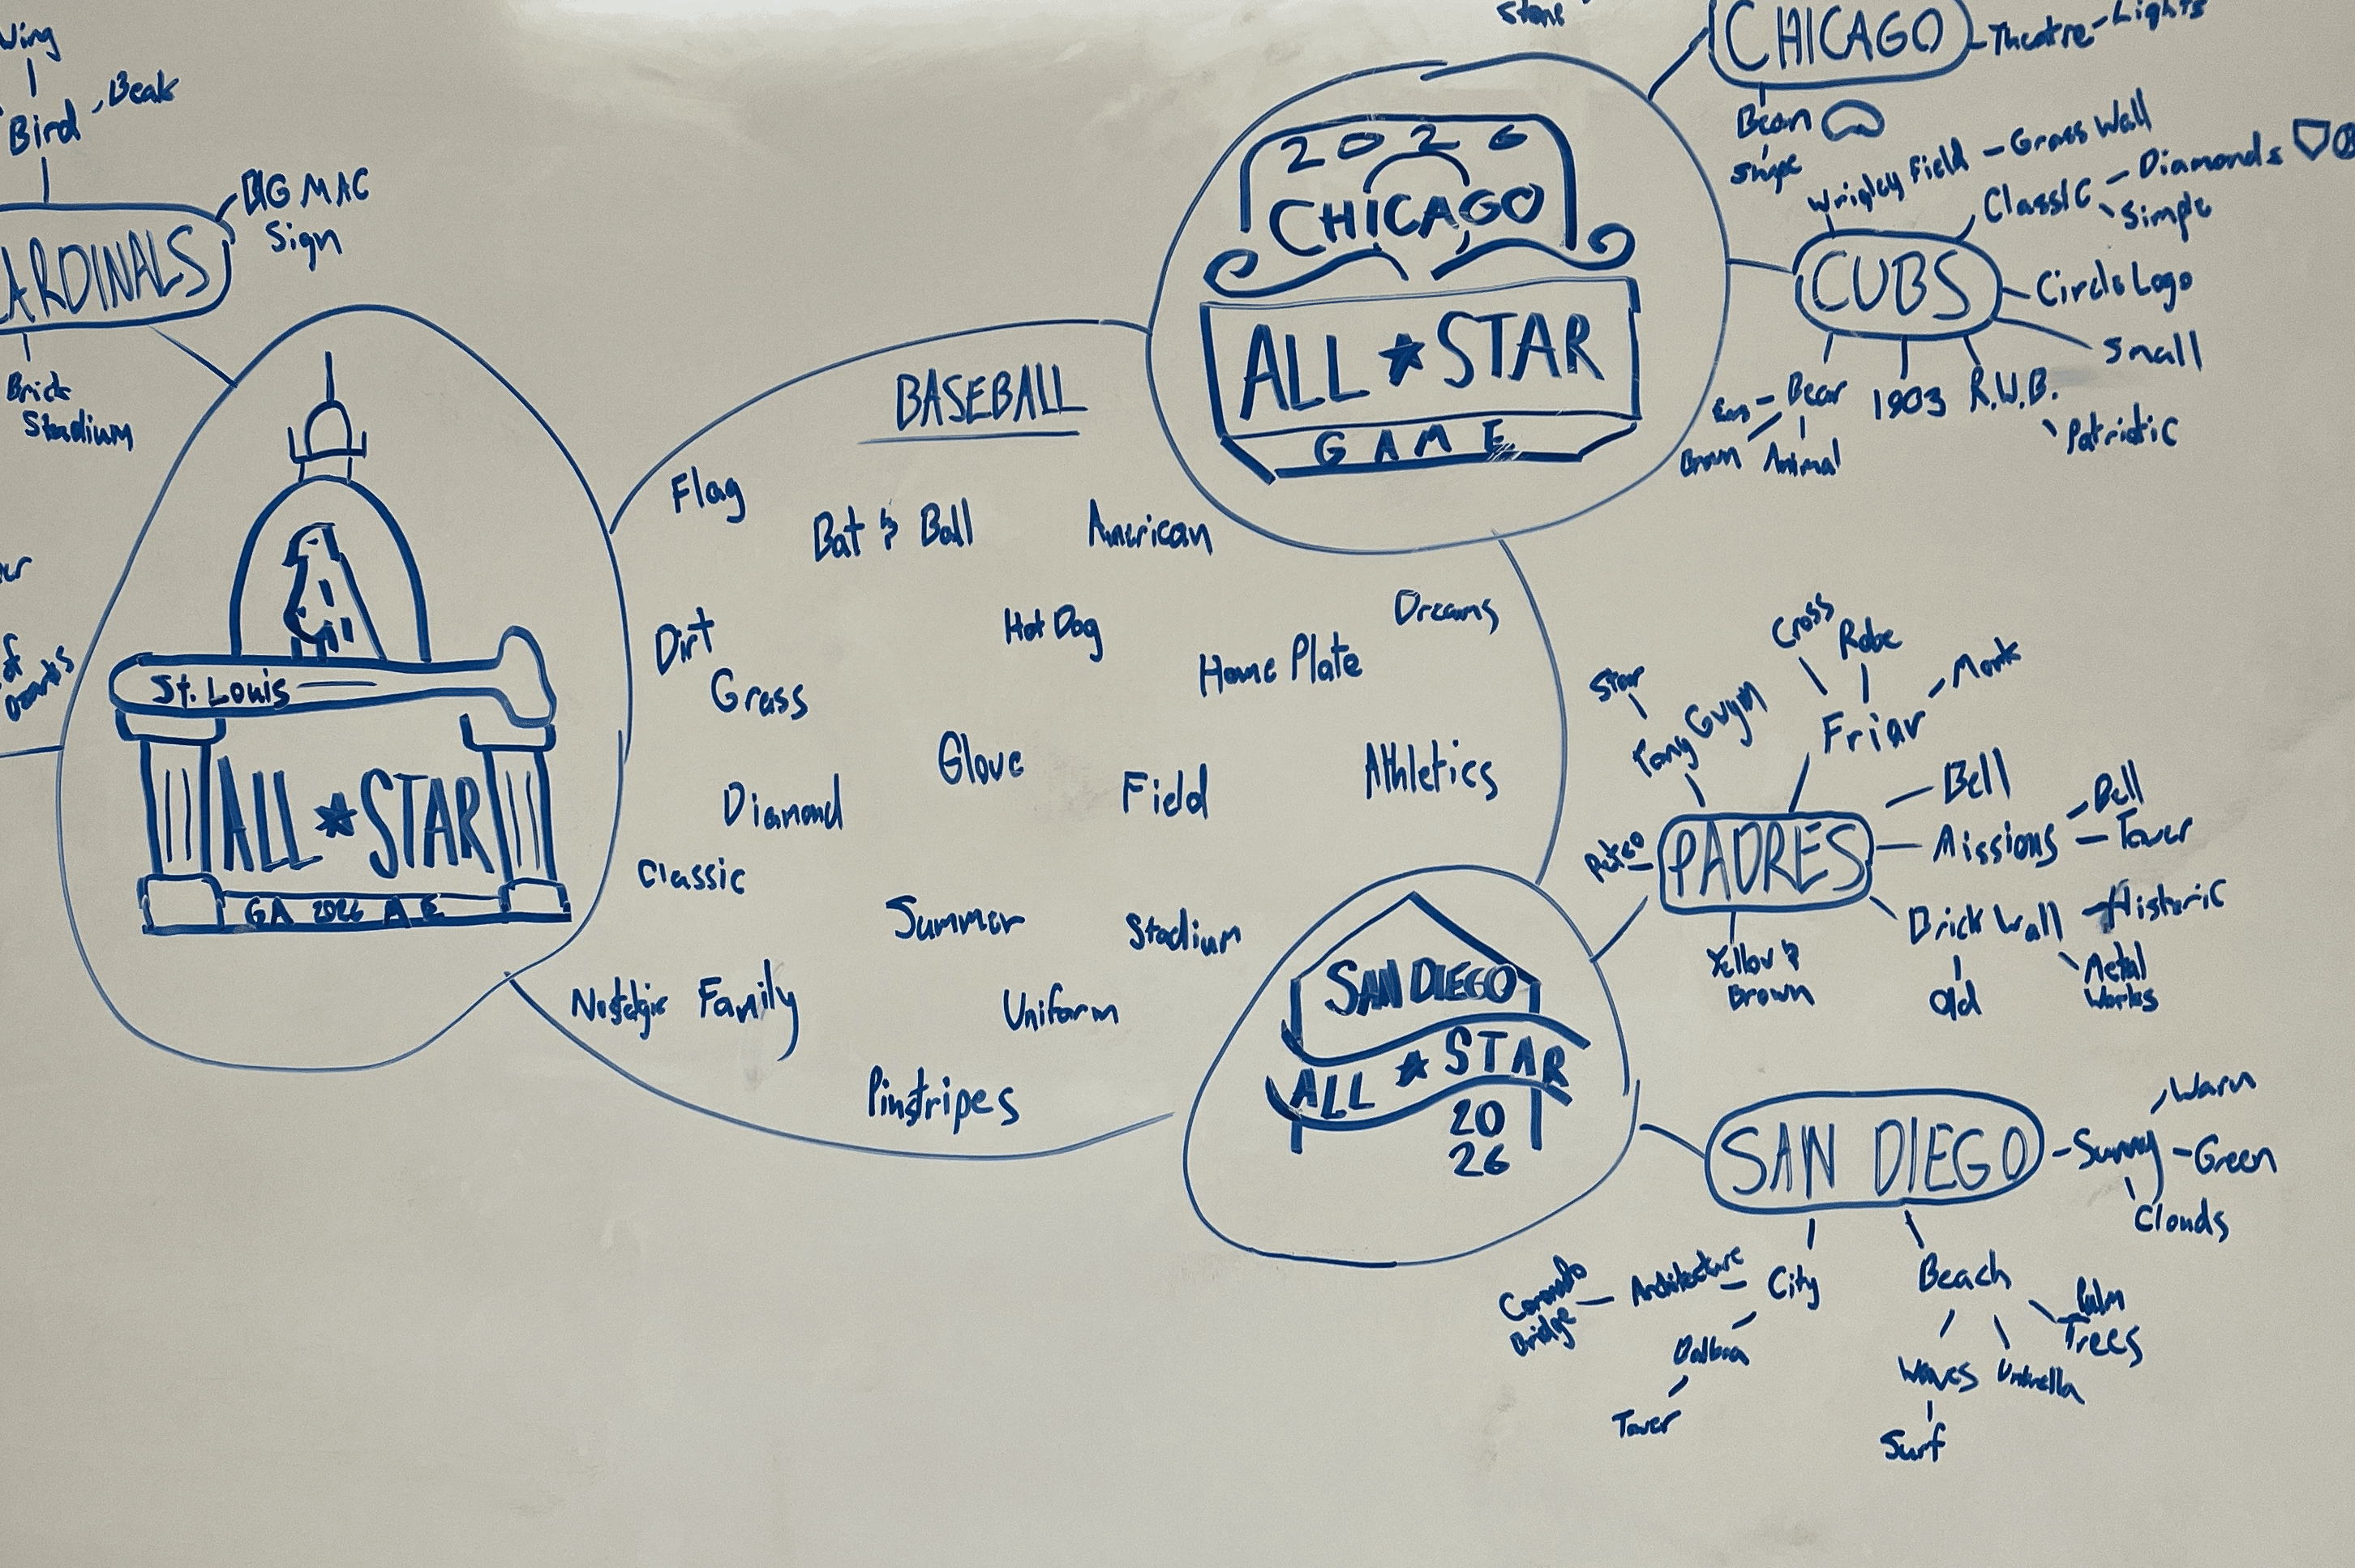 Wing
Bird
Beak
BIG MAC
Sign
ARDINALS
Brick
Stadium
St. Louis
ALL ★ STAR
GA 2026 M E
BASEBALL
Flag
Bat & Ball
American
Dirt
Grass
Hot Dog
Dreams
Home Plate
Glove
Diamond
Field
Athletics
Classic
Summer
Stadium
Nostalgic
Family
Uniform
Pinstripes
2026
CHICAGO
ALL ★ STAR
GAME
Stone
CHICAGO
Theatre - Lights
Bean
Shape
Wrigley Field - Grass Wall
Classic - Diamonds
Simple
CUBS
Circle Logo
Small
Bear
Brown
Animal
1903
R.W.B.
Patriotic
SAN DIEGO
ALL ★ STAR
20
26
Star
Tony Gwynn
Cross
Robe
Friar - Monk
PADRES
Petco
Bell
Missions - Bell
Tower
Brick Wall - Historic
Old
Metal
Works
Yellow &
Brown
SAN DIEGO
Sunny
Warm
Green
Clouds
City
Architecture
Coronado
Bridge
Balboa
Tower
Beach
Palm
Trees
Waves
Umbrella
Surf